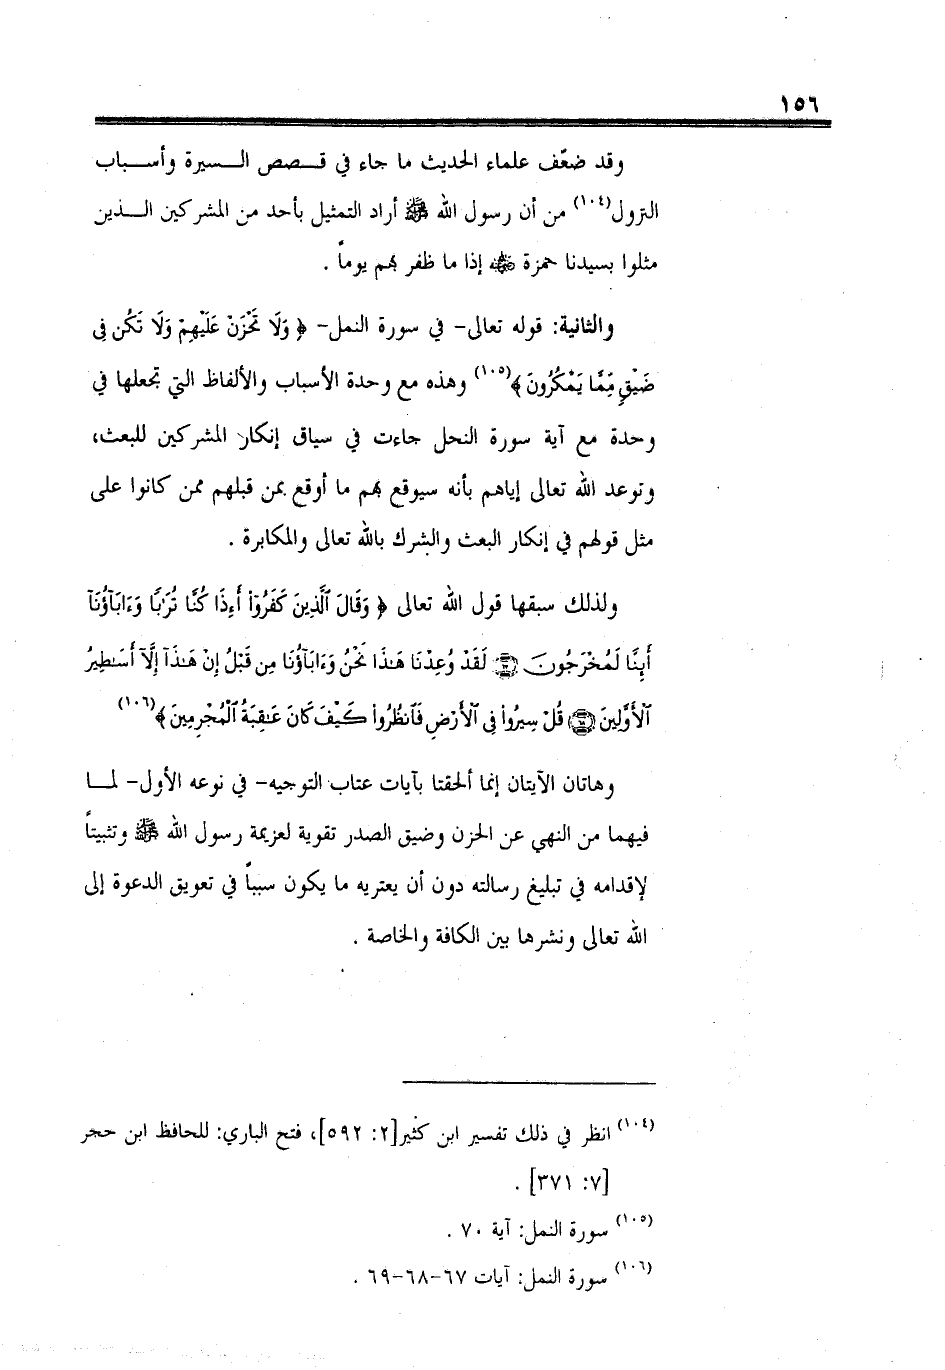 ١٥٦
وقد ضعّف علماء الحديث ما جاء في قـصص الـسيرة وأسـباب
النزول(١٠٤) من أن رسول الله ﷺ أراد التمثيل بأحد من المشركين الـذين
مثلوا بسيدنا حمزة ﷺ إذا ما ظفر بهم يوماً .
والثانية: قوله تعالى- في سورة النمل- ﴿ وَلَا تَحْزَنْ عَلَيْهِمْ وَلَا تَكُن فِى
ضَيْقٍ مِّمَّا يَمْكُرُونَ ﴾(١٠٥) وهذه مع وحدة الأسباب والألفاظ التي تجعلها في
وحدة مع آية سورة النحل جاءت في سياق إنكار المشركين للبعث،
وتوعد الله تعالى إياهم بأنه سيوقع بهم ما أوقع بمن قبلهم ممن كانوا على
مثل قولهم في إنكار البعث والشرك بالله تعالى والمكابرة .
ولذلك سبقها قول الله تعالى ﴿ وَقَالَ ٱلَّذِينَ كَفَرُوٓا۟ أَءِذَا كُنَّا تُرَٰبًا وَءَابَآؤُنَآ
أَئِنَّا لَمُخْرَجُونَ ۝ لَقَدْ وُعِدْنَا هَٰذَا نَحْنُ وَءَابَآؤُنَا مِن قَبْلُ إِنْ هَٰذَآ إِلَّآ أَسَٰطِيرُ
ٱلْأَوَّلِينَ ۝ قُلْ سِيرُوا۟ فِى ٱلْأَرْضِ فَٱنظُرُوا۟ كَيْفَ كَانَ عَٰقِبَةُ ٱلْمُجْرِمِينَ ﴾(١٠٦)
وهاتان الآيتان إنما ألحقتا بآيات عتاب التوجيه- في نوعه الأول- لمـا
فيهما من النهي عن الحزن وضيق الصدر تقوية لعزيمة رسول الله ﷺ وتثبيتاً
لإقدامه في تبليغ رسالته دون أن يعتريه ما يكون سبباً في تعويق الدعوة إلى
الله تعالى ونشرها بين الكافة والخاصة .
(١٠٤) انظر في ذلك تفسير ابن كثير[٢: ٥٩٢]، فتح الباري: للحافظ ابن حجر
[٧: ٣٧١] .
(١٠٥) سورة النمل: آية ٧٠ .
(١٠٦) سورة النمل: آيات ٦٧-٦٨-٦٩ .